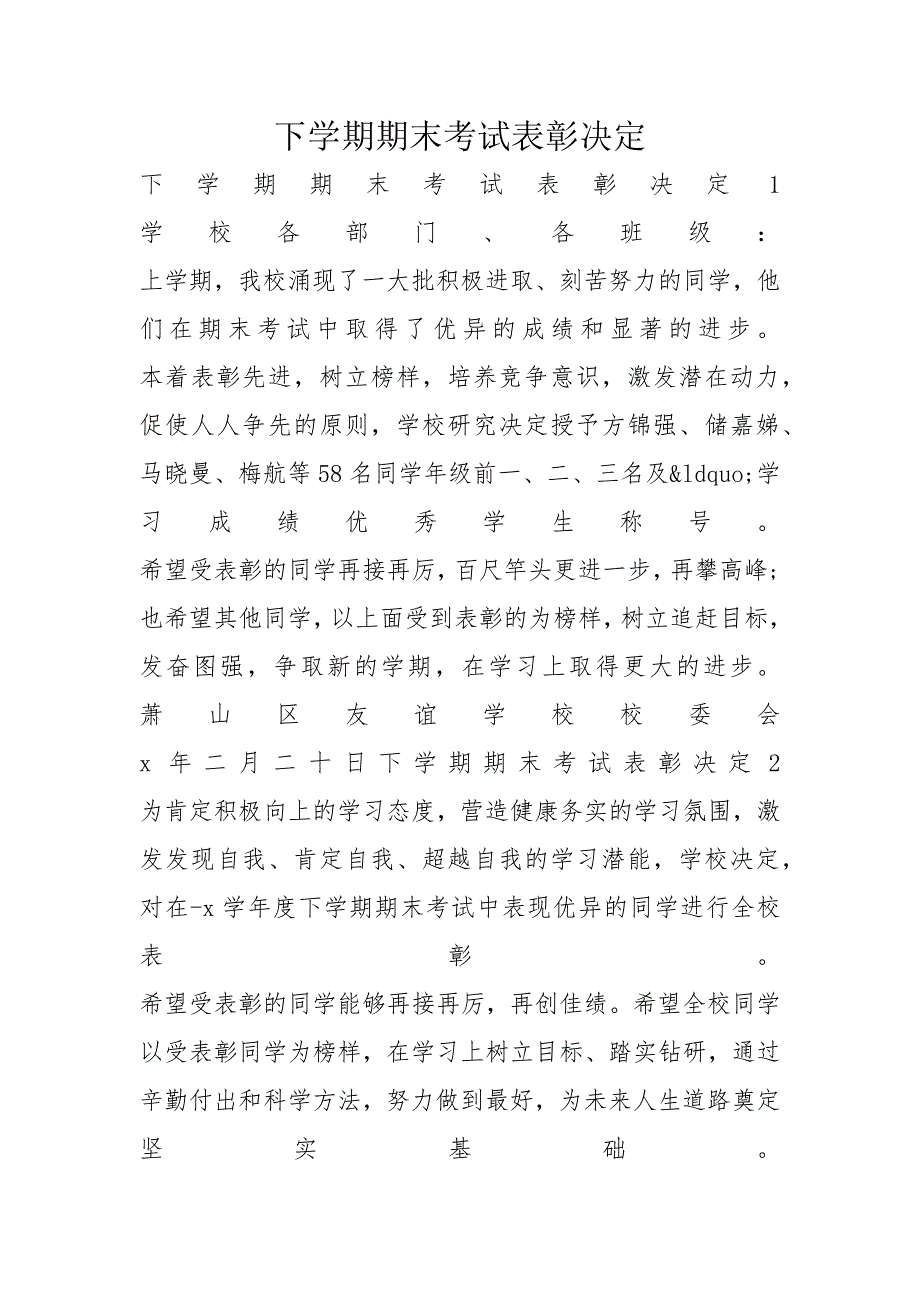 下学期期末考试表彰决定
下学期期末考试表彰决定1
学校各部门、各班级：
上学期，我校涌现了一大批积极进取、刻苦努力的同学，他
们在期末考试中取得了优异的成绩和显著的进步。
本着表彰先进，树立榜样，培养竞争意识，激发潜在动力，
促使人人争先的原则，学校研究决定授予方锦强、储嘉娣、
马晓曼、梅航等58名同学年级前一、二、三名及&ldquo;学
习成绩优秀学生称号。
希望受表彰的同学再接再厉，百尺竿头更进一步，再攀高峰;
也希望其他同学，以上面受到表彰的为榜样，树立追赶目标，
发奋图强，争取新的学期，在学习上取得更大的进步。
萧山区友谊学校校委会
x年二月二十日下学期期末考试表彰决定2
为肯定积极向上的学习态度，营造健康务实的学习氛围，激
发发现自我、肯定自我、超越自我的学习潜能，学校决定，
对在-x学年度下学期期末考试中表现优异的同学进行全校
表彰。
希望受表彰的同学能够再接再厉，再创佳绩。希望全校同学
以受表彰同学为榜样，在学习上树立目标、踏实钻研，通过
辛勤付出和科学方法，努力做到最好，为未来人生道路奠定
坚实基础。